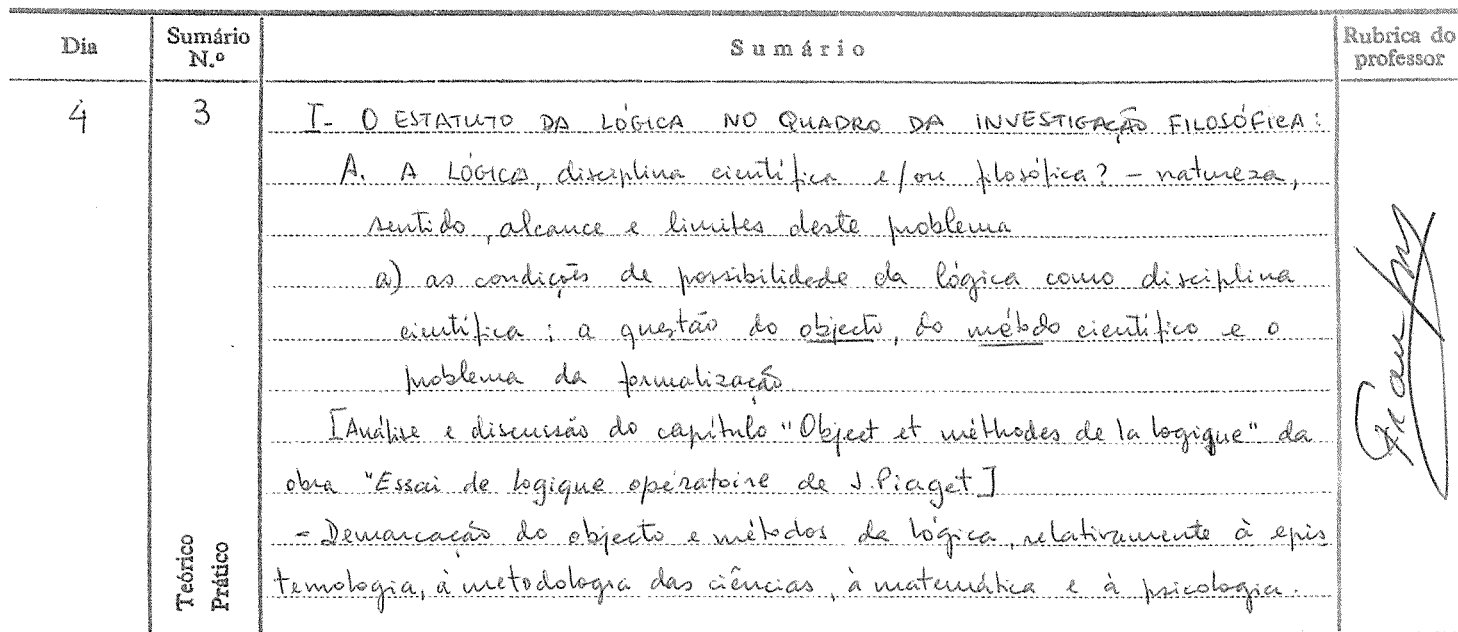 Dia
Sumário N.º
Sumário
Rubrica do professor
4
3
I- O ESTATUTO DA LÓGICA NO QUADRO DA INVESTIGAÇÃO FILOSÓFICA:
A. A LÓGICA, disciplina científica e/ou filosófica? - natureza,
sentido, alcance e limites deste problema
a) as condições de possibilidade da lógica como disciplina
científica: a questão do objecto, do método científico e o
problema da formalização
[Análise e discussão do capítulo "Object et méthodes de la logique" da
obra "Essai de logique opératoire de J. Piaget]
- Demarcação do objecto e métodos da lógica, relativamente à epis
temologia, à metodologia das ciências, à matemática e à psicologia.
Teórico
Prático